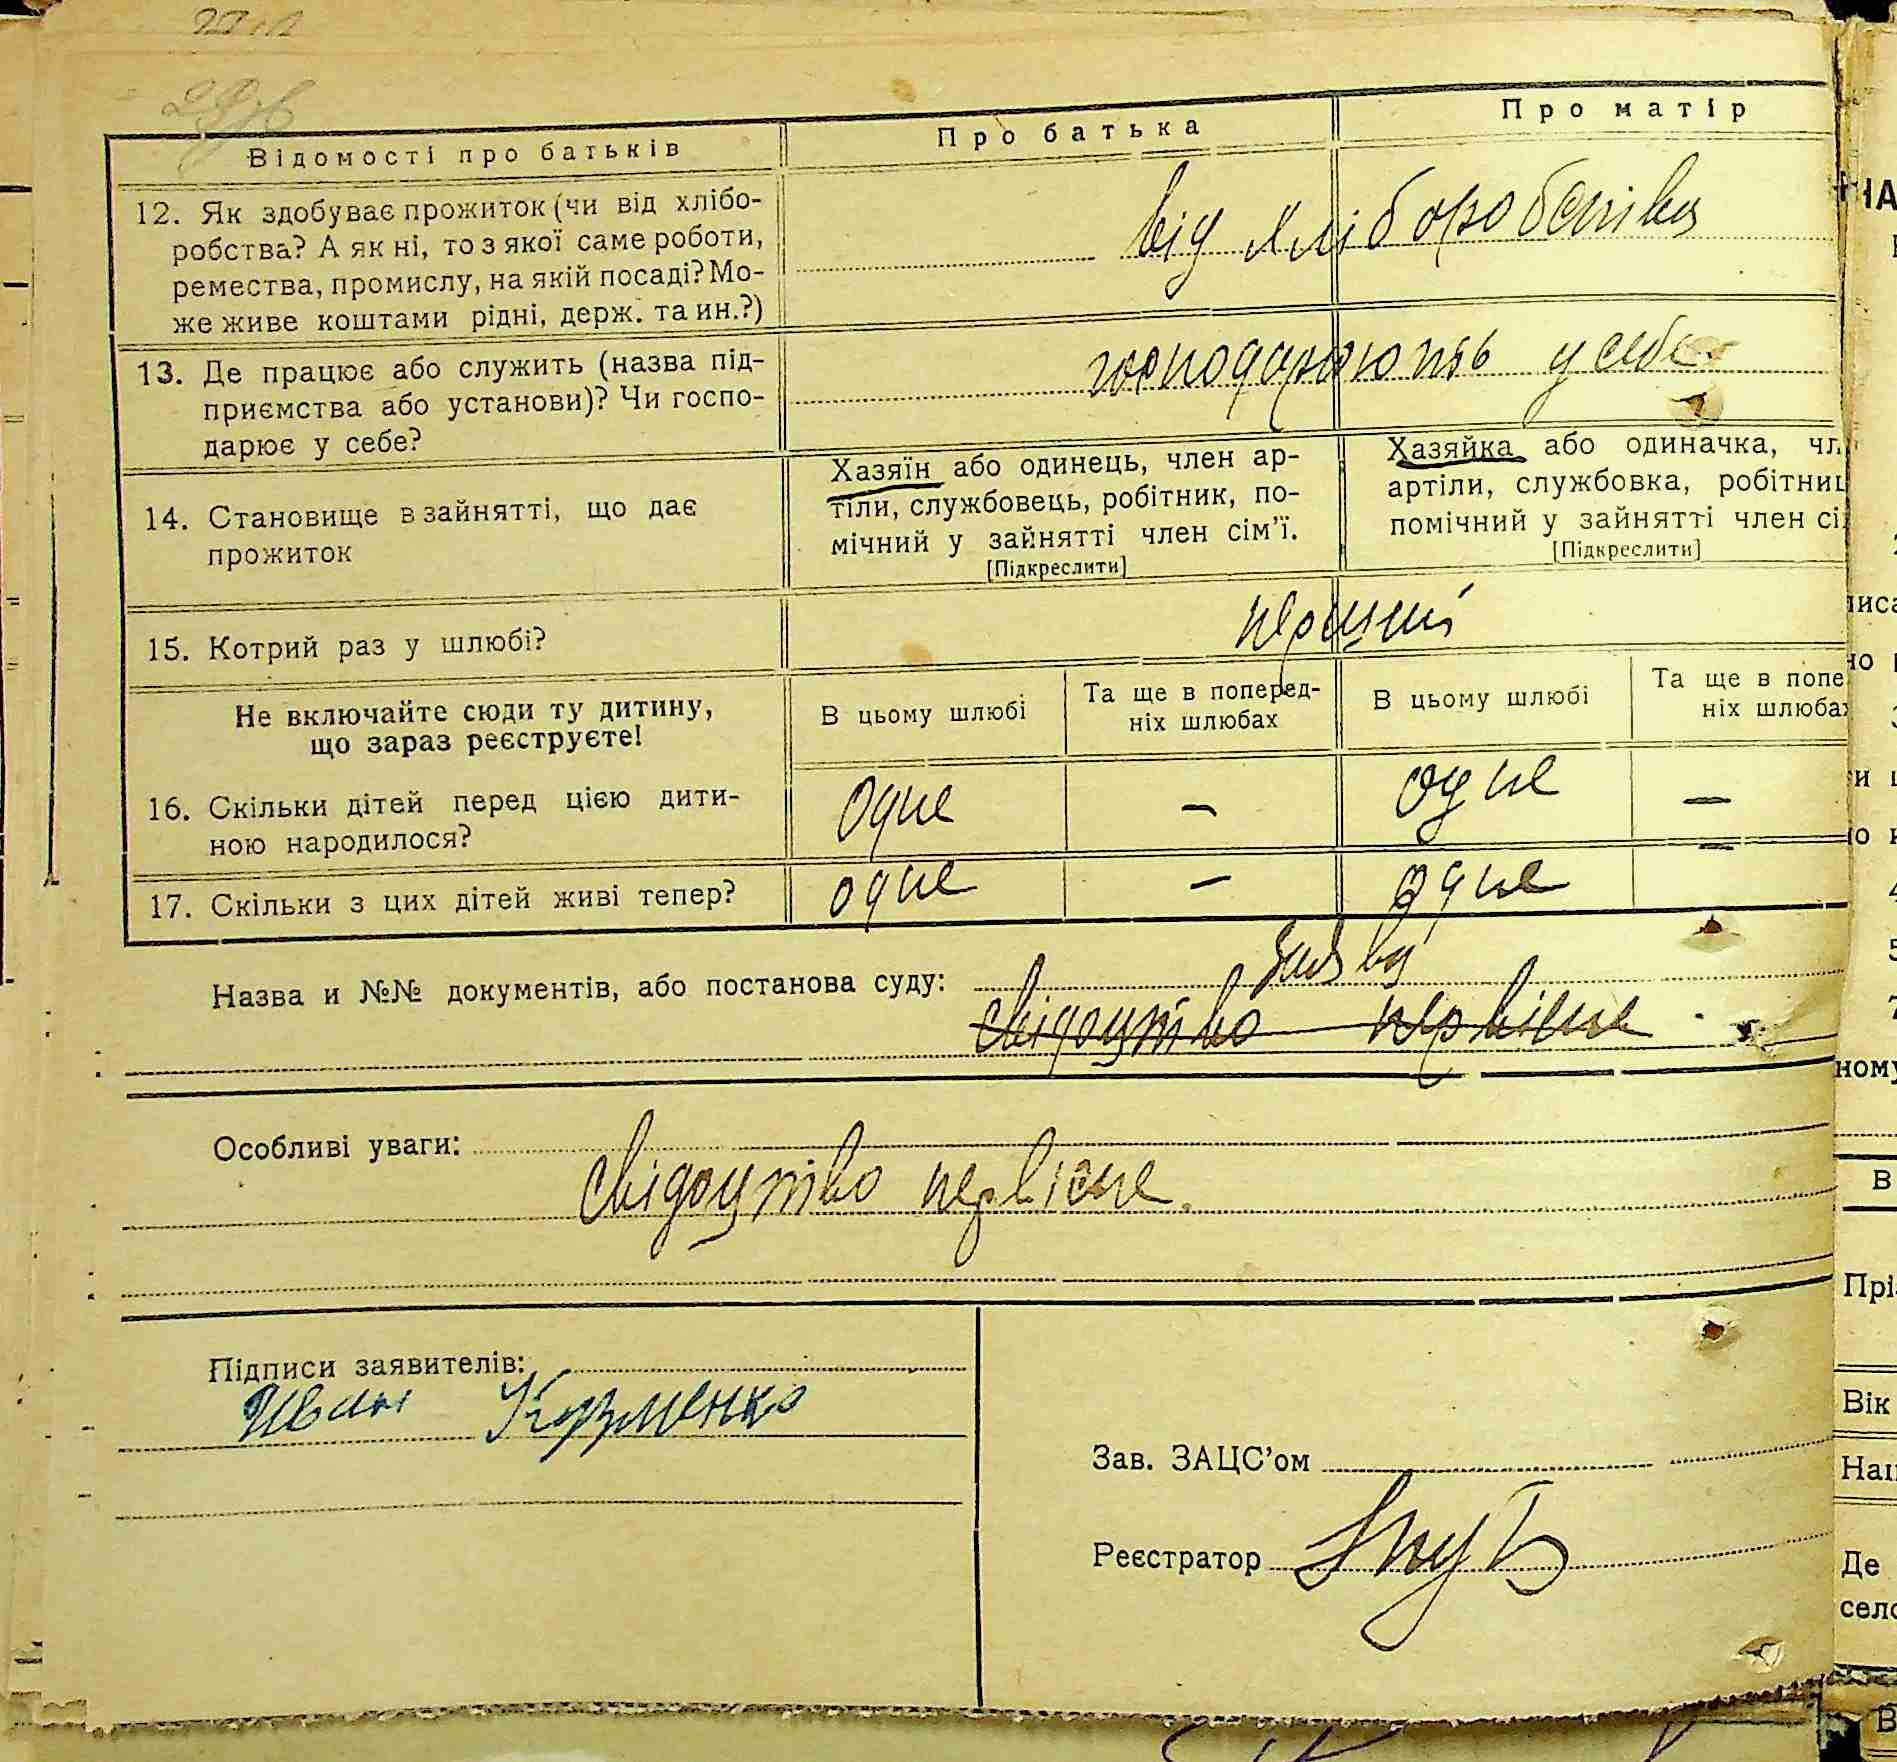 Відомості про батьків
Про батька
Про матір
12. Як здобуває прожиток (чи від хлібо-
робства? А як ні, то з якої саме роботи,
ремества, промислу, на якій посаді? Мо-
же живе коштами рідні, держ. та ин.?)
від хліборобства
13. Де працює або служить (назва під-
приємства або установи)? Чи госпо-
дарює у себе?
господарюють у себе.
14. Становище в зайнятті, що дає
прожиток
Хазяїн або одинець, член ар-
тіли, службовець, робітник, по-
мічний у зайнятті член сім’ї.
[Підкреслити]
Хазяйка або одиначка, чл
артіли, службовка, робітниц
помічний у зайнятті член сі
[Підкреслити]
15. Котрий раз у шлюбі?
перший
Не включайте сюди ту дитину,
що зараз реєструєте!
В цьому шлюбі
Та ще в поперед-
ніх шлюбах
В цьому шлюбі
Та ще в попе
ніх шлюбах
16. Скільки дітей перед цією дити-
ною народилося?
Одне
–
одне
–
17. Скільки з цих дітей живі тепер?
одне
–
одне
–
Назва и №№ документів, або постанова суду:
заява
свідоцтво первісне
Особливі уваги:
свідоцтво первісне.
Підписи заявителів:
Иван Кузменко
Зав. ЗАЦС’ом
Реєстратор
НА
писа
но
ти
но
ному
В
Прі
Вік
Нац
Де
село
В